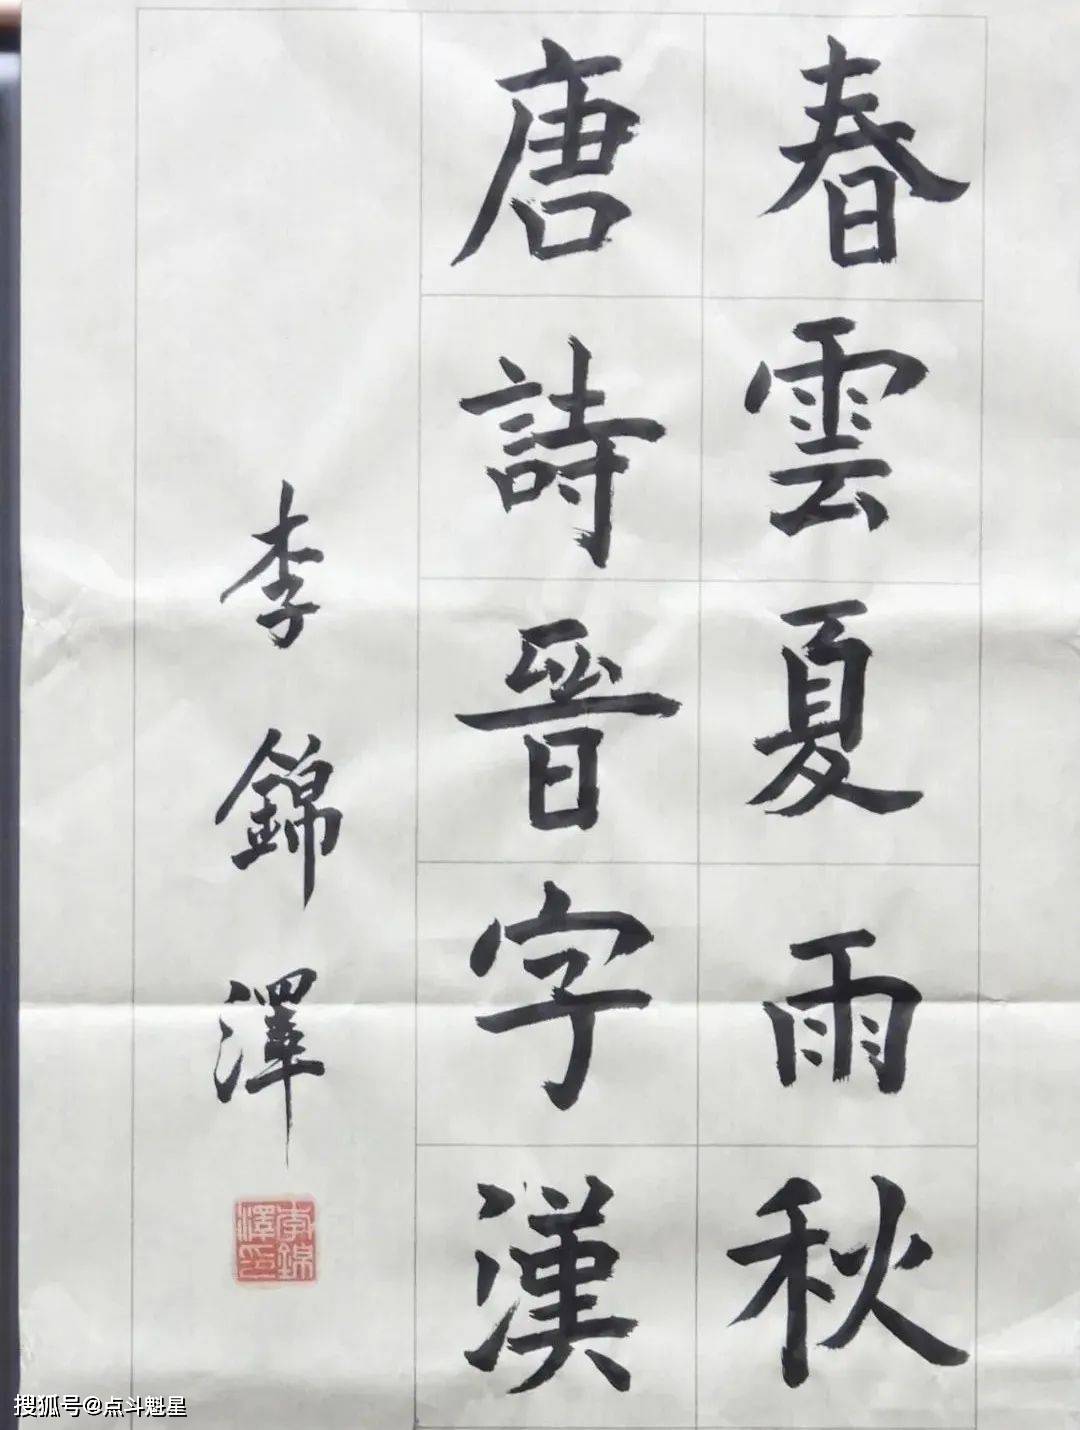 春雲夏雨秋
唐詩晉字漢
李錦澤
李錦澤印
搜狐号@点斗魁星